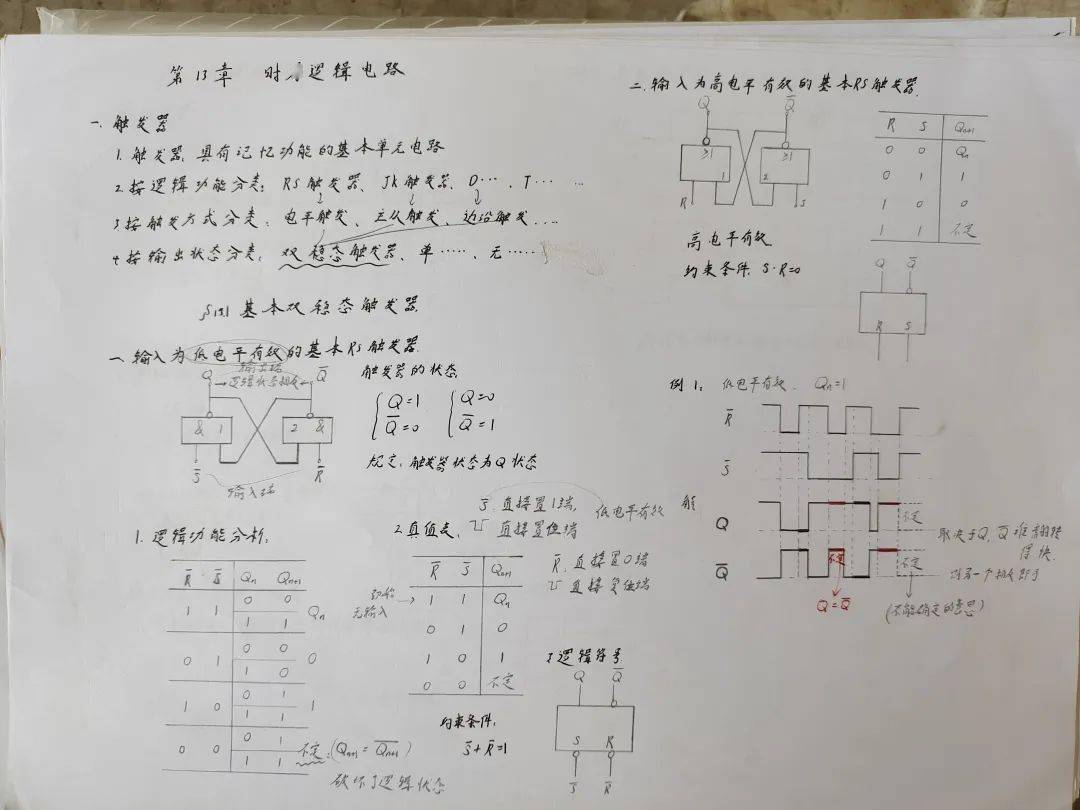 第13章 时序逻辑电路
一. 触发器
1. 触发器: 具有记忆功能的基本单元电路
2. 按逻辑功能分类: RS触发器、JK触发器、D…、T… …
3. 按触发方式分类: 电平触发、主从触发、边沿触发….
4. 按输出状态分类: 双稳态触发器、单……、无……
§13.1 基本双稳态触发器
一. 输入为低电平有效的基本RS触发器
Q 输出端 Q̅
→逻辑状态相反←
& 1 2 &
S̅ R̅
输入端
触发器的状态
Q=1 Q=0
Q̅=0 Q̅=1
规定: 触发器状态为Q状态
1. 逻辑功能分析:
R̅ S̅ Qn Qn+1
1 1 0 0 Qn
1 1
0 1 0 0 0
1 0
1 0 0 1 1
1 1
0 0 0 1 不定:(Qn+1 = Q̅n+1)
1 1
破坏了逻辑状态
2. 真值表:
S̅ 直接置1端, 低电平有效
直接置位端
R̅, 直接置0端
直接复位端
R̅ S̅ Qn+1
无输入 → 1 1 Qn
0 1 0
1 0 1
0 0 不定
约束条件:
S̅+R̅=1
3 逻辑符号
Q Q̅
S R
S̅ R̅
二. 输入为高电平有效的基本RS触发器
Q Q̅
≥1 ≥1
1 2
R S
R S Qn+1
0 0 Qn
0 1 1
1 0 0
1 1 不定
高电平有效
约束条件: S·R=0
Q Q̅
R S
例1: 低电平有效. Qn=1
R̅
S̅
解
Q 不定
Q̅ 不定 不定
Q=Q̅
取决于Q, Q̅谁翻转
得快.
另一个相反即可
(不能确定的意思)